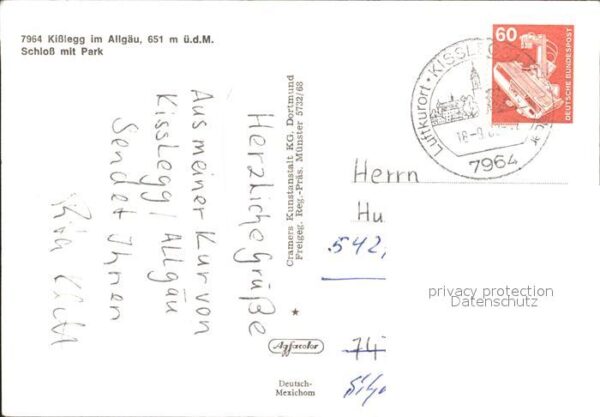 7964 Kißlegg im Allgäu, 651 m ü.d.M.
Schloß mit Park
Herzliche Grüße
Aus meiner Kur von
Kisslegg / Allgäu
Sendet Ihnen
Cramers Kunstanstalt KG. Dortmund
Freigeg. Reg.-Präs. Münster 5732/68
Agfacolor
Deutsch-
Mexichom
60
DEUTSCHE BUNDESPOST
Luftkurort · KISSLEGG
7964
Herrn
Hu
542
74
privacy protection
Datenschutz